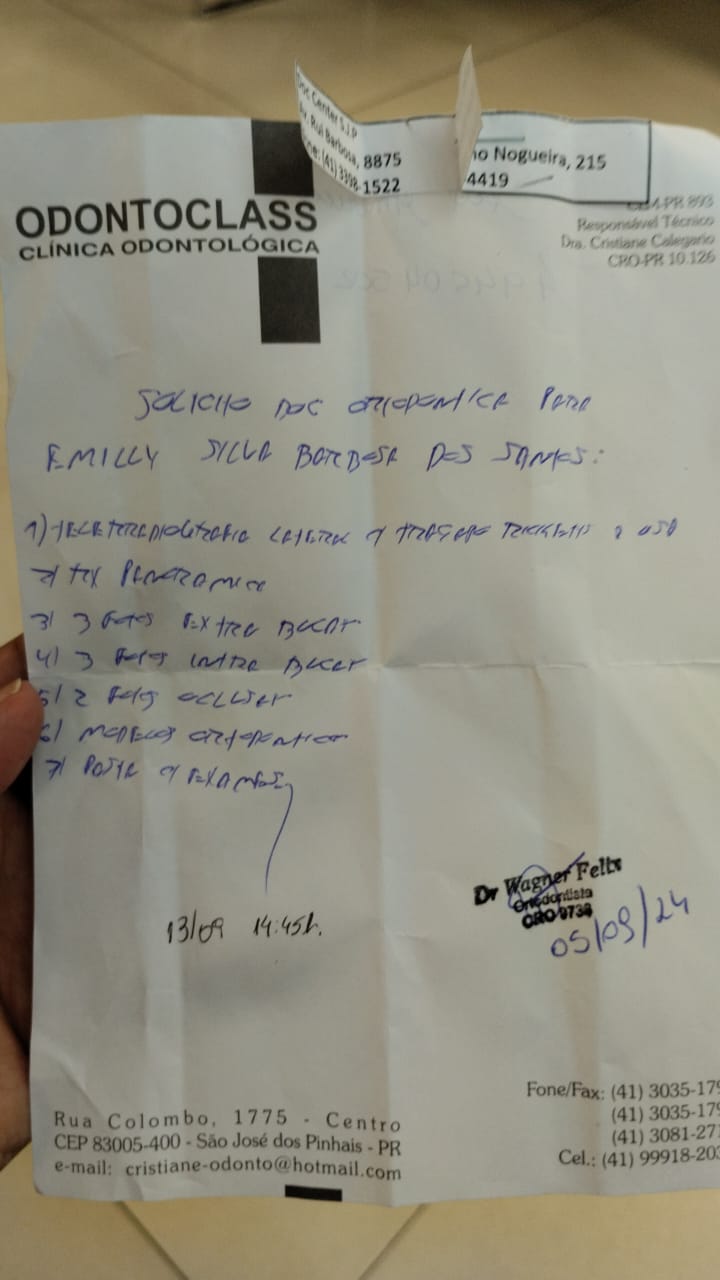 Doc Center S.J.P
Av. Rui Barbosa, 8875
Fone: (41) 3398-1522
no Nogueira, 215
4419
ODONTOCLASS
CLÍNICA ODONTOLÓGICA
-PR 893
Responsável Técnico
Dra. Cristiane Calegario
CRO-PR 10.126
SOLICITO DOC ORTODONTICA PARA
EMILLY SILVA BARBOSA DOS SANTOS:
1) TELERRADIOGRAFIA LATERAL C/ TRAÇADO RICKETTS E USP
2) RX PANORAMICA
3) 3 FOTOS EXTRA BUCAL
4) 3 FOTOS INTRA BUCAL
5) 2 FOTOS OCLUSAL
6) MODELOS ORTODONTICO
7) PASTA C/ EXAMES
13/09 14:45h.
Dr Wagner Felix
Ortodontista
CRO 9738
05/09/24
Rua Colombo, 1775 - Centro
CEP 83005-400 - São José dos Pinhais - PR
e-mail: cristiane-odonto@hotmail.com
Fone/Fax: (41) 3035-179
(41) 3035-179
(41) 3081-27
Cel.: (41) 99918-203